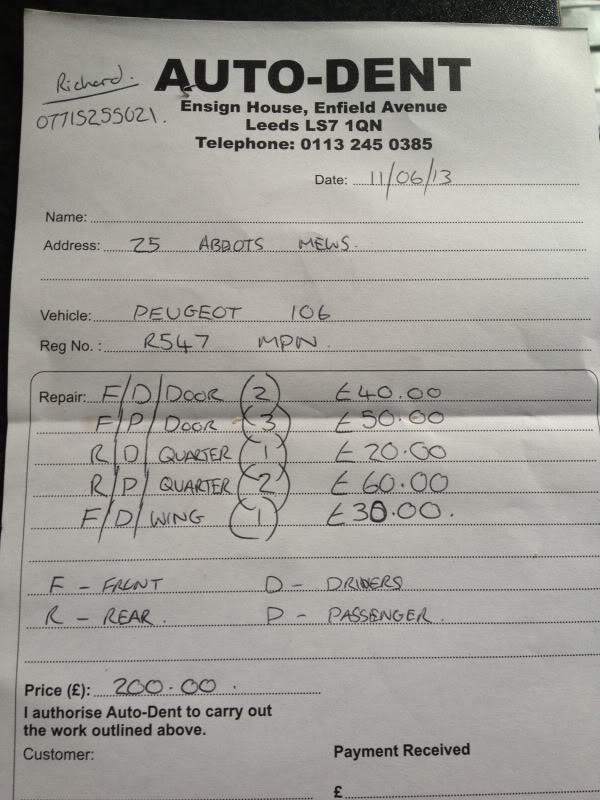 Richard.
07715255021.
AUTO-DENT
Ensign House, Enfield Avenue
Leeds LS7 1QN
Telephone: 0113 245 0385
Date: 11/06/13
Name:
Address: 25 ABBOTS MEWS.
Vehicle: PEUGEOT 106
Reg No. : R547 MPN.
Repair: F/D/DOOR (2) £40.00
F/P/DOOR (3) £50.00
R/D/QUARTER (1) £20.00
R/P/QUARTER (2) £60.00
F/D/WING (1) £30.00.
F - FRONT D - DRIVERS
R - REAR. P - PASSENGER.
Price (£): 200.00.
I authorise Auto-Dent to carry out
the work outlined above.
Customer: Payment Received
£